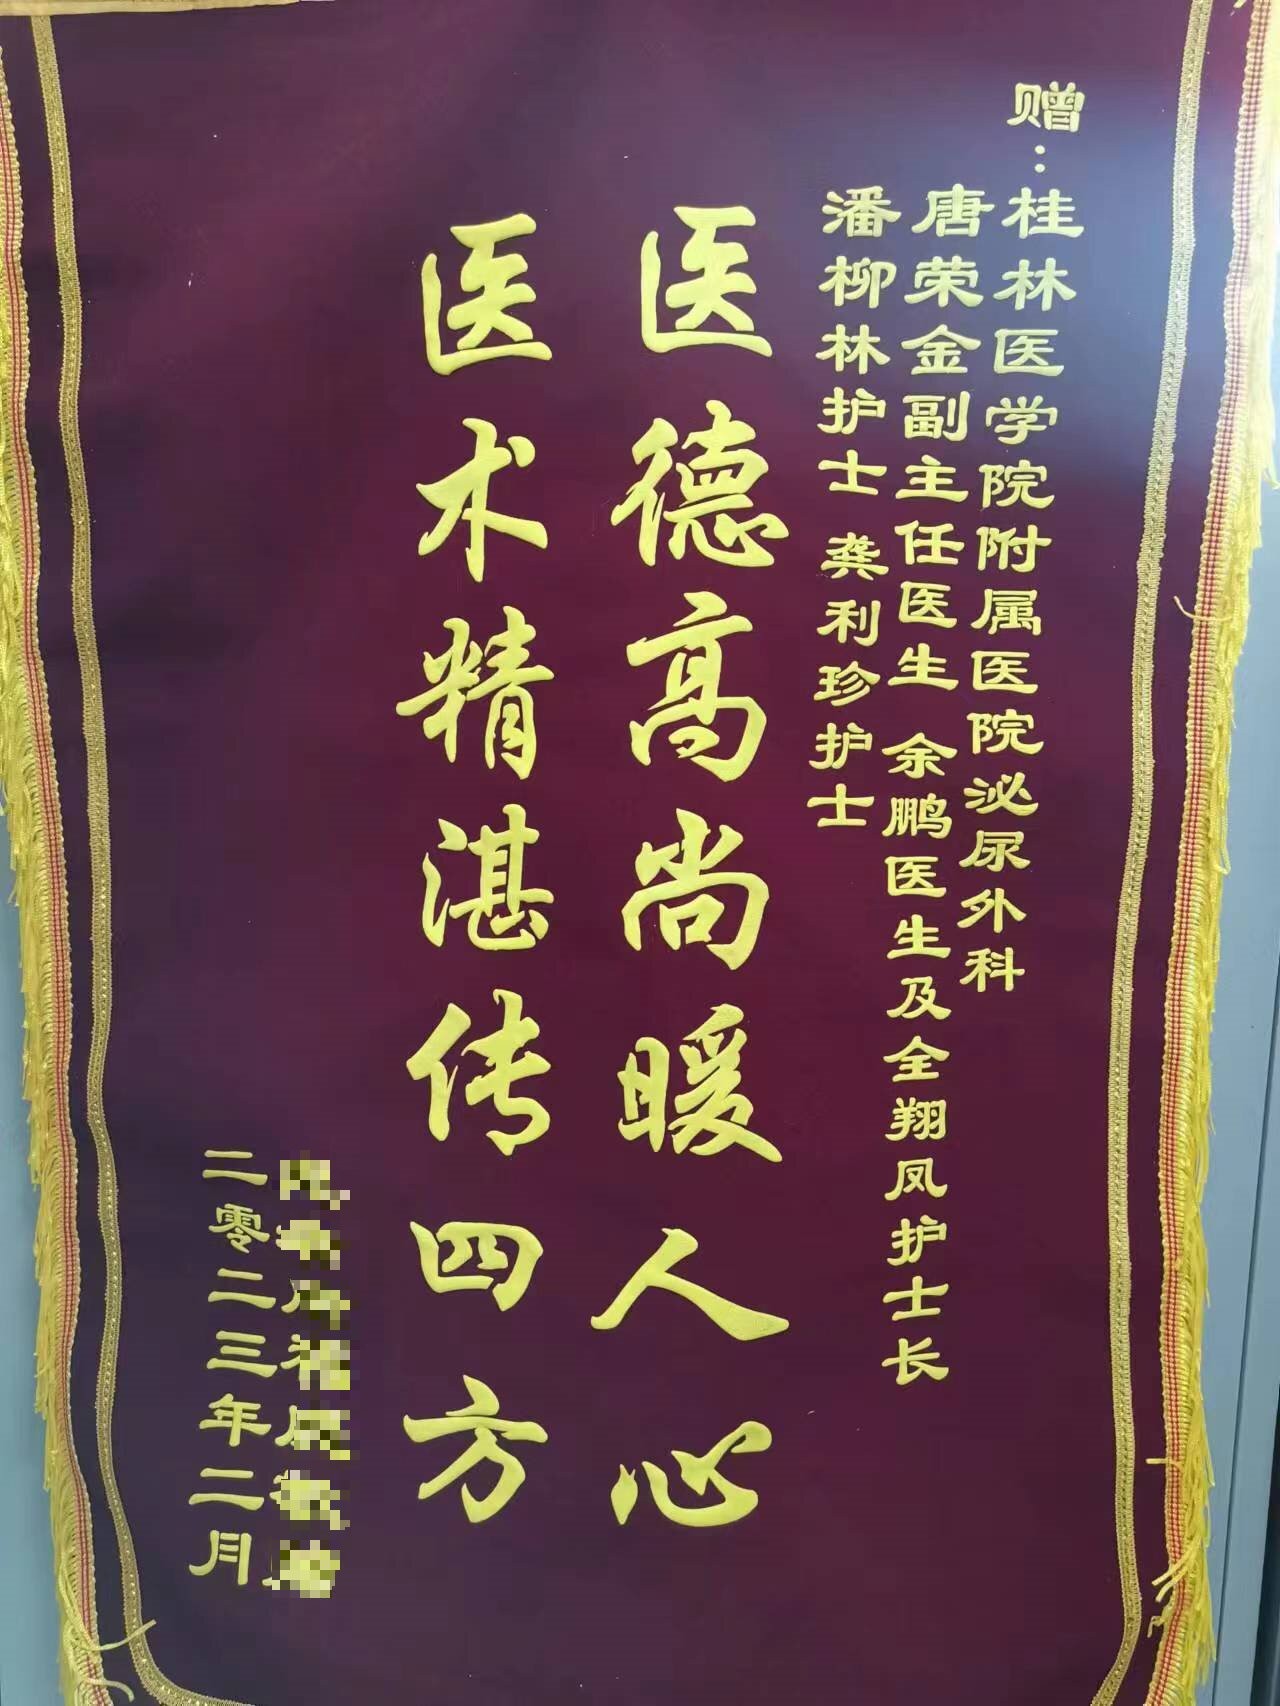 赠：桂林医学院附属医院泌尿外科
唐荣金副主任医生 余鹏医生及全翔凤护士长
潘柳林护士 龚利珍护士
医德高尚暖人心
医术精湛传四方
二零二三年二月